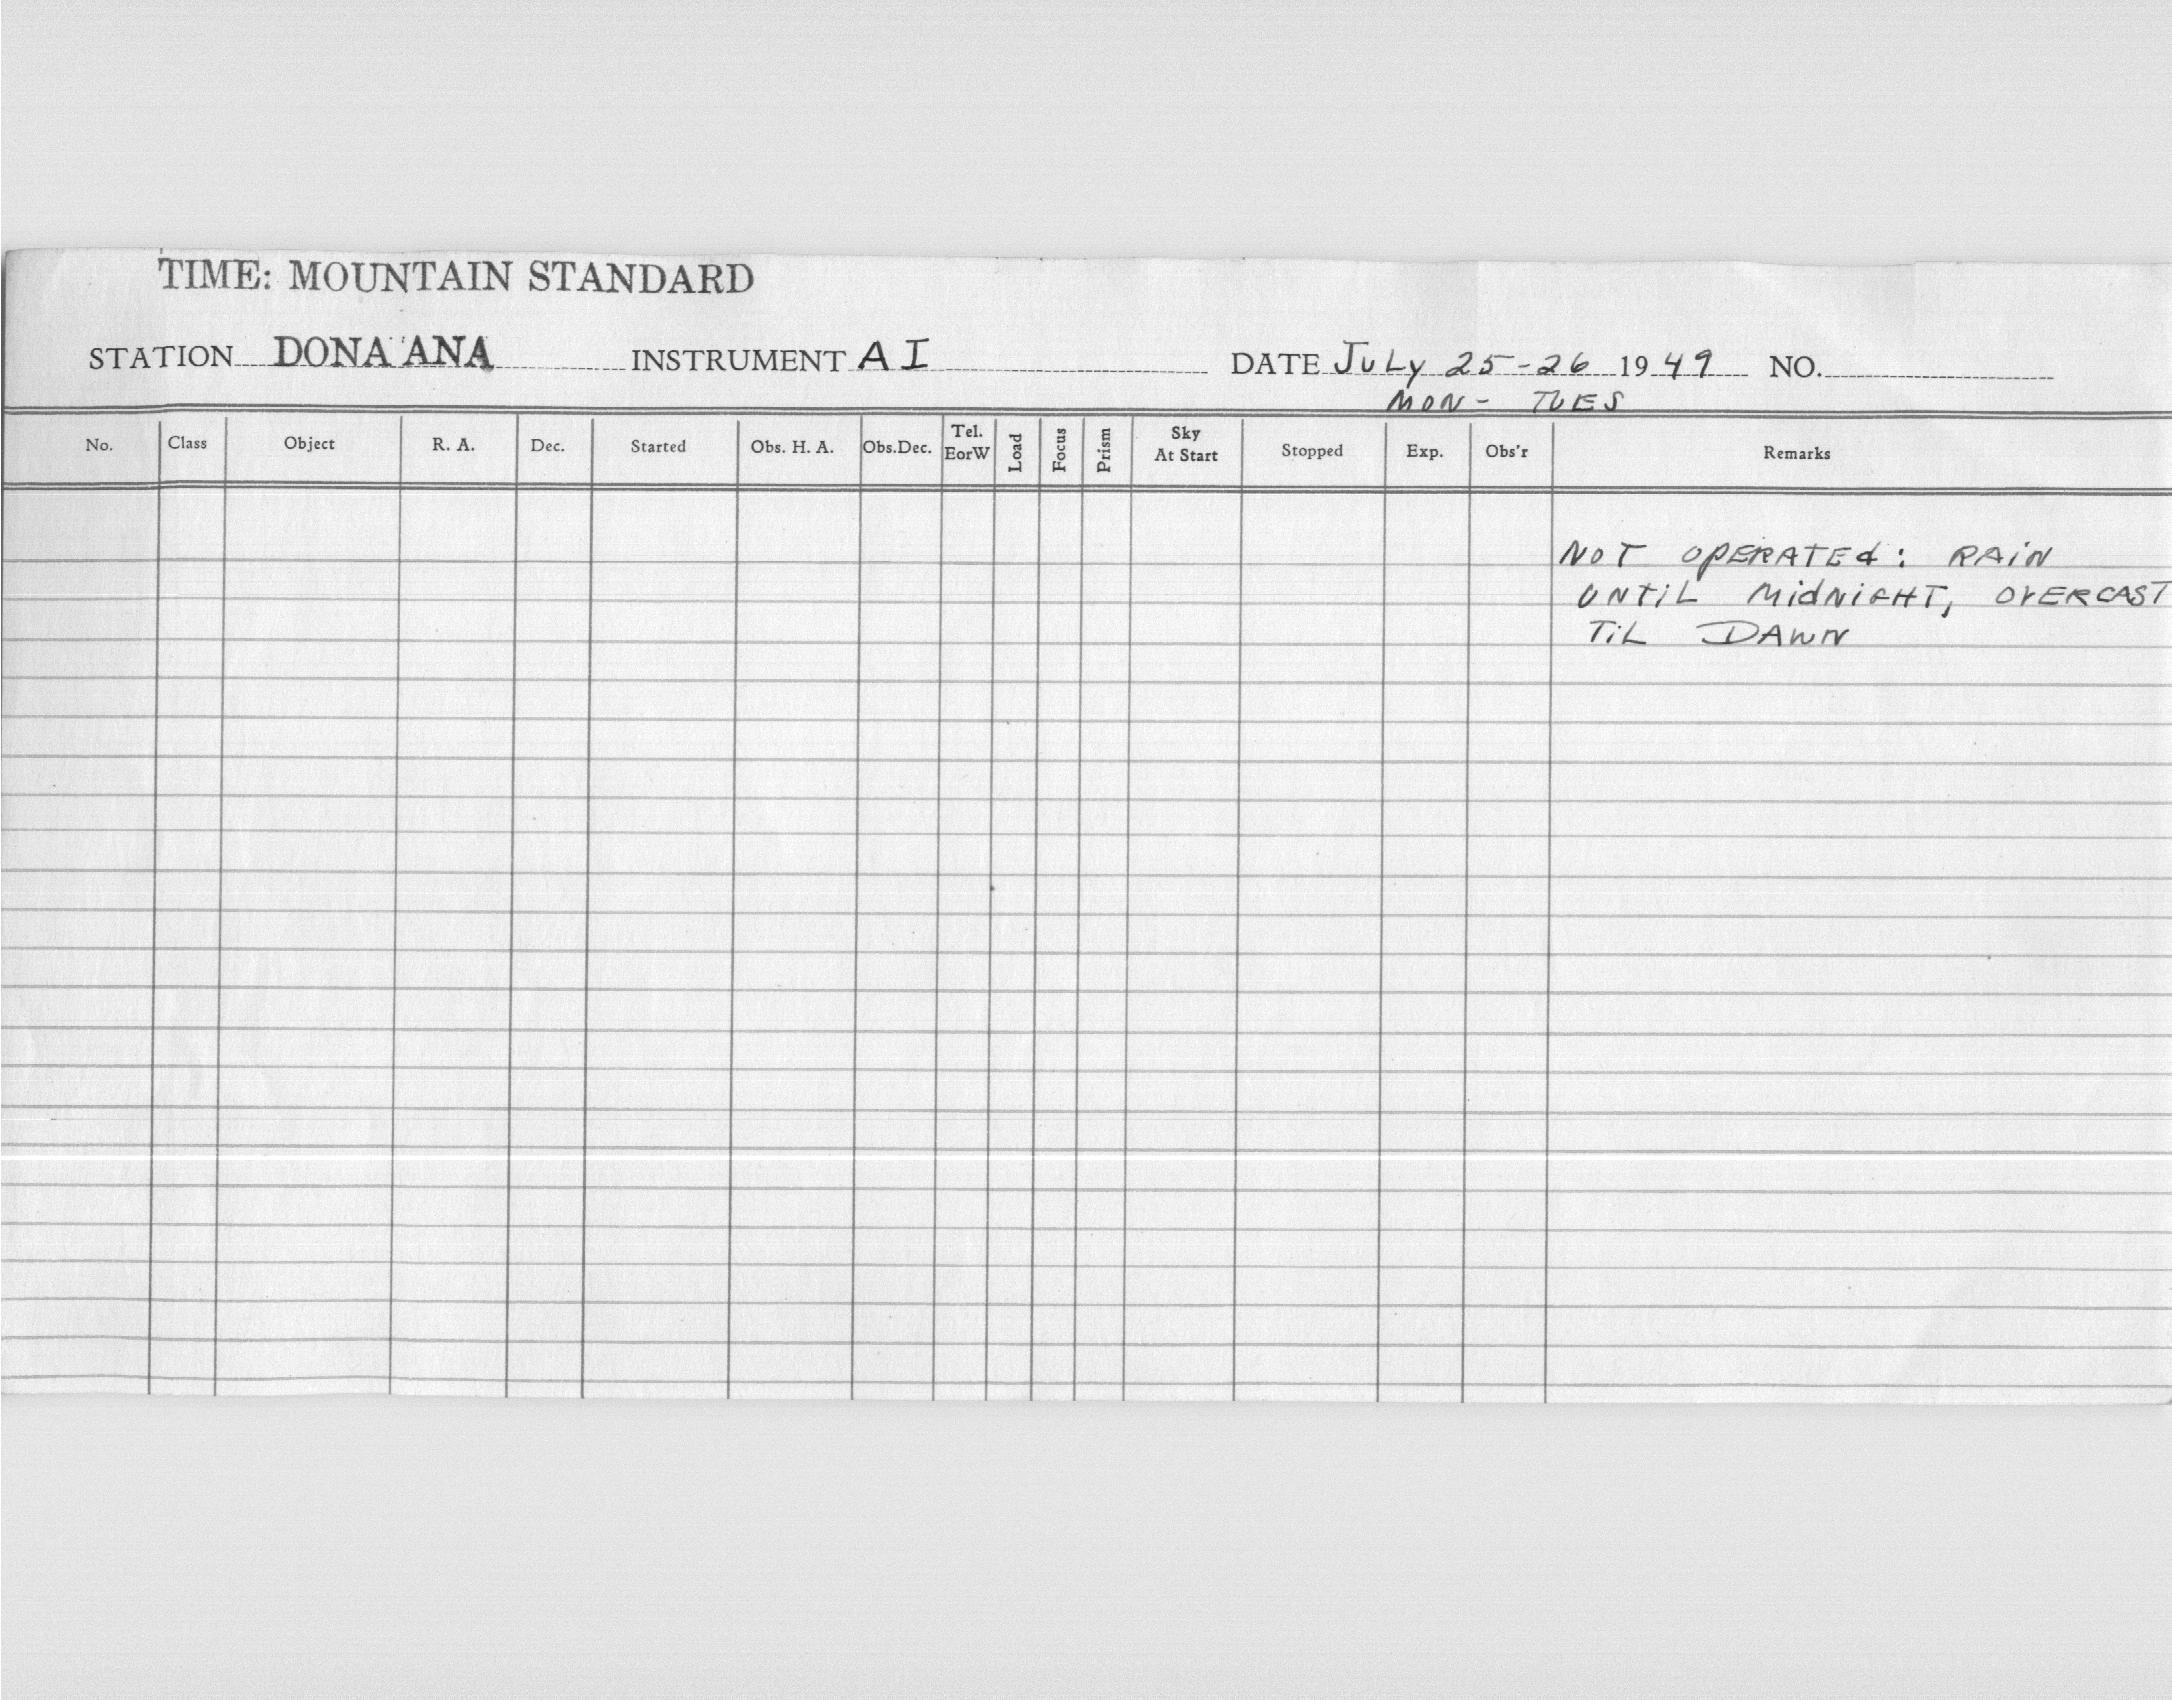 TIME: MOUNTAIN STANDARD
STATION DONA ANA INSTRUMENT AI DATE JULY 25-26 1949 NO.
MON- TUES
No. Class Object R. A. Dec. Started Obs. H. A. Obs.Dec. Tel. EorW Load Focus Prism Sky At Start Stopped Exp. Obs'r Remarks
NOT OPERATEd: RAiN
UNTiL MidNiGHT, OVERCAST
TiL DAWN